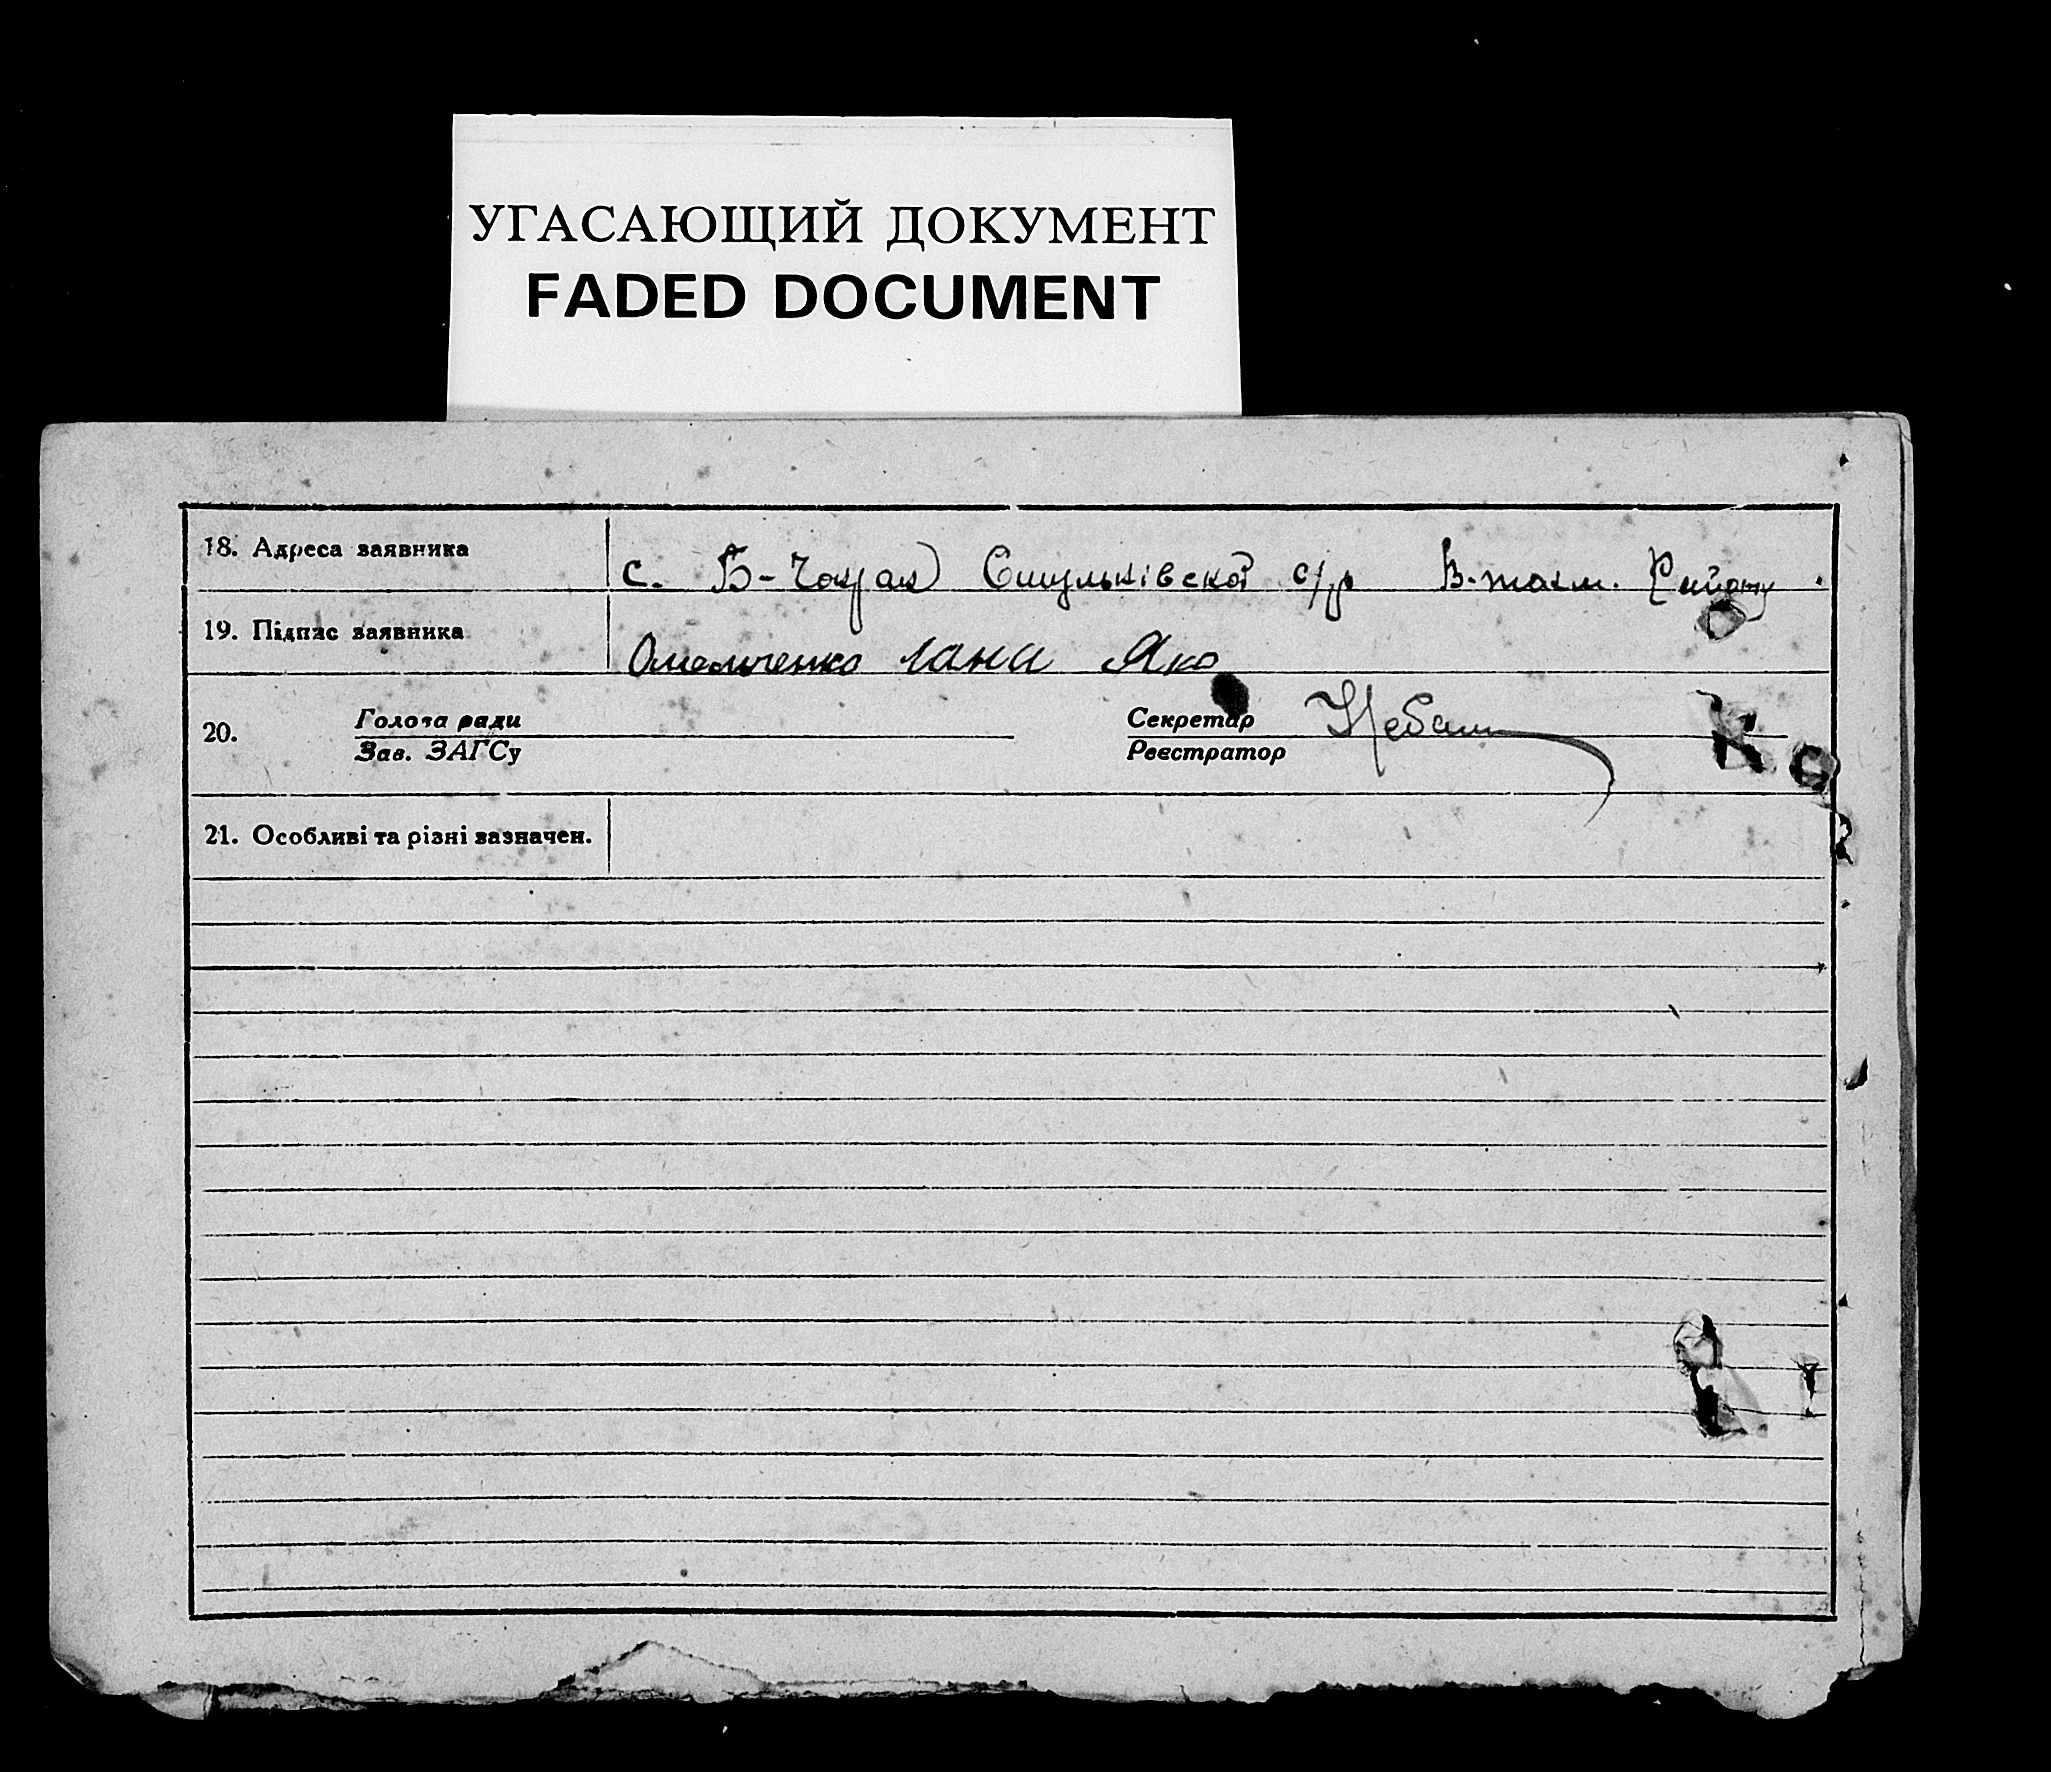 УГАСАЮЩИЙ ДОКУМЕНТ
FADED DOCUMENT
18. Адреса заявника
с. Б-Чокрак с/р В-токм. Району.
19. Підпис заявника
Омельченко Яко
20. Голова ради
Зав. ЗАГСу
Секретар
Реєстратор
21. Особливі та різні зазначен.